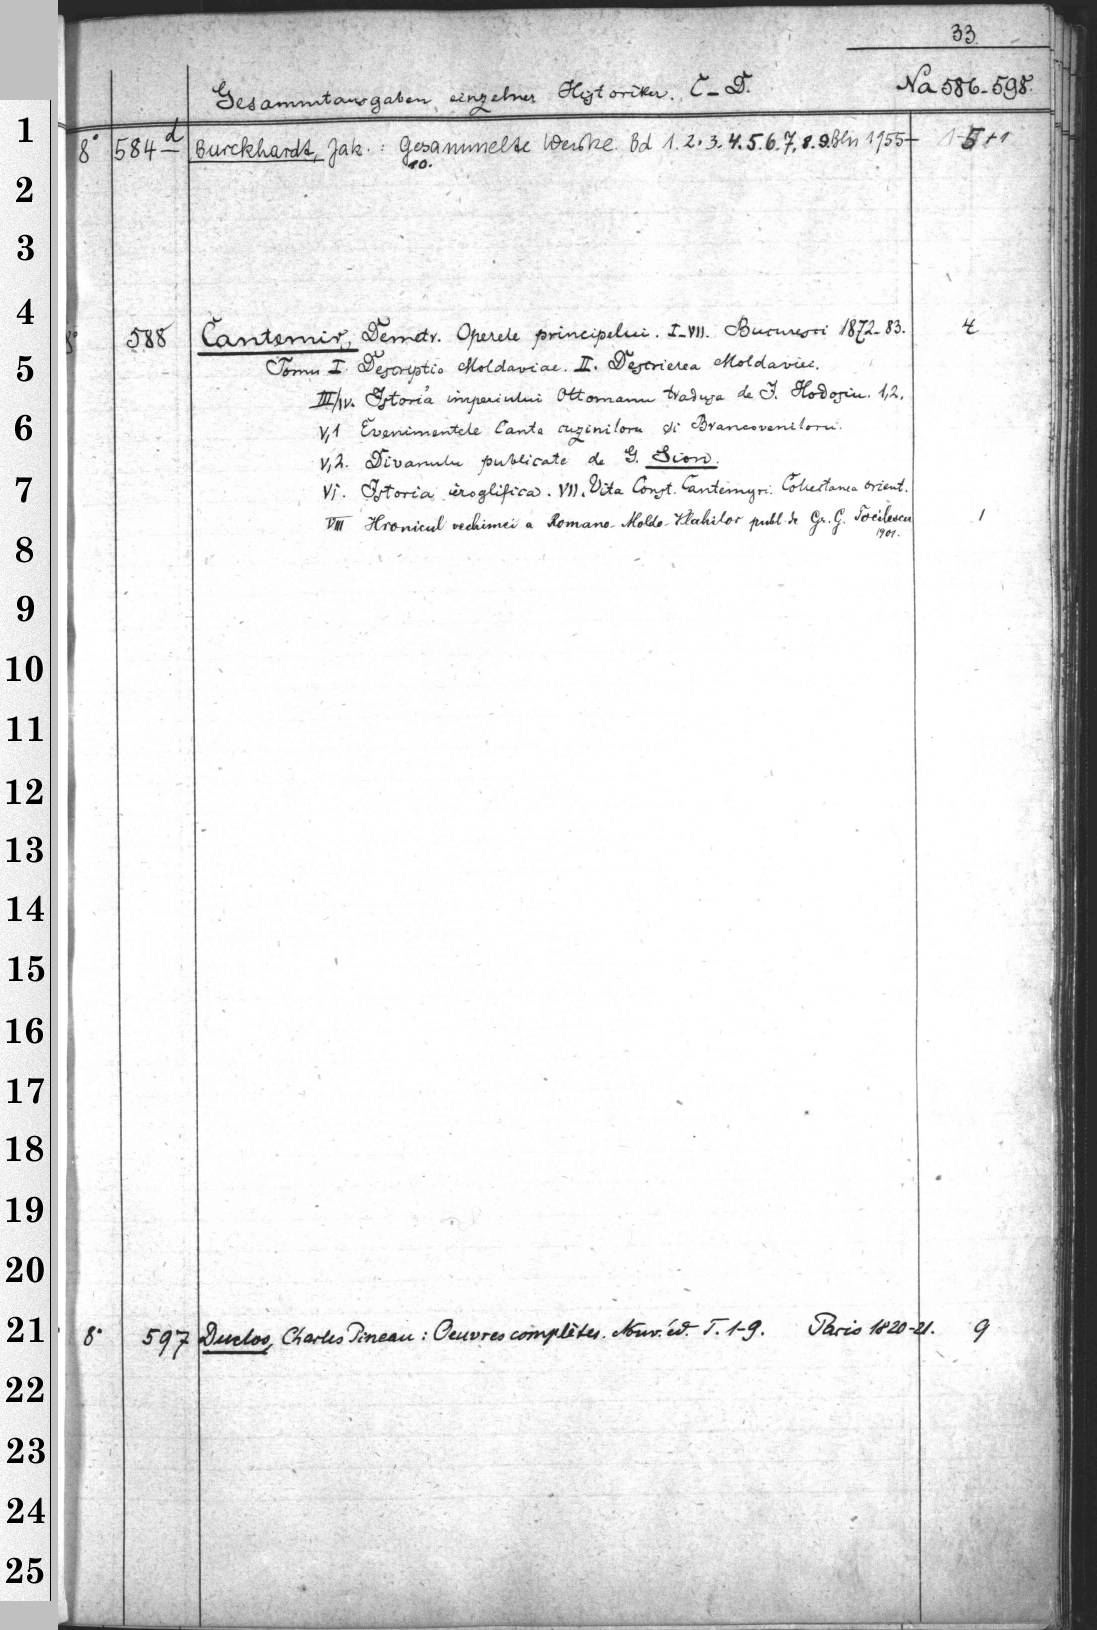 33.
Gesammtausgaben einzelner Historiker. C-D.
Na 586-598.
1
8° 584 d Burckhardt, Jak.: Gesammelte Werke. Bd 1.2.3.4.5.6.7.8.9. Bln 1955-
10.
2
3
4
8° 588 Cantemir, Demetr. Operele principelui. I-VII. Bucuresci 1872-83. 4
5
Tomu I. Descriptio Moldaviae. II. Descrierea Moldaviei.
III/IV. Istoria imperiului Ottomanu tradusa de I. Hodosiu. 1,2.
6
V,1 Evenimentele Canta cuziniloru si Brancoveniloru.
V,2. Divanulu publicate de G. Sion.
7
VI. Istoria ieroglifica. VII. Vita Const. Cantemyri. Collectanea orient.
VIII Hronicul vechimei a Romano-Moldo-Vlahilor publ. de Gr. G. Tocilescu 1
1901.
8
9
10
11
12
13
14
15
16
17
18
19
20
21
8° 597 Duclos, Charles Pineau: Oeuvres complètes. Nouv. éd. T. 1-9. Paris 1820-21. 9
22
23
24
25